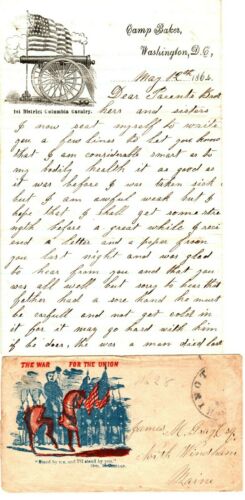 Camp Baker,
Washington, D.C,
1st District Columbia Cavalry.
May 12th 1864.
Dear Parents Brot
hers and sisters
I now seat myself to write
you a few lines to let you know
that I am considerable smart as to
my bodily health it as good as
it was before I was taken sick
but I am awful weak but I
hope that I shall get some stre
ngth before a great while I recei
end a letter and a paper from
you last night and was glad
to hear from you and that you
was all well but sorry to hear that
father had a sore hand he must
be carful and not get cold in
it for it may go hard with him
if he does, the was a man died last
THE WAR FOR THE UNION
"Stand by me, and I'll stand by you."
James M.
North Windham
Maine